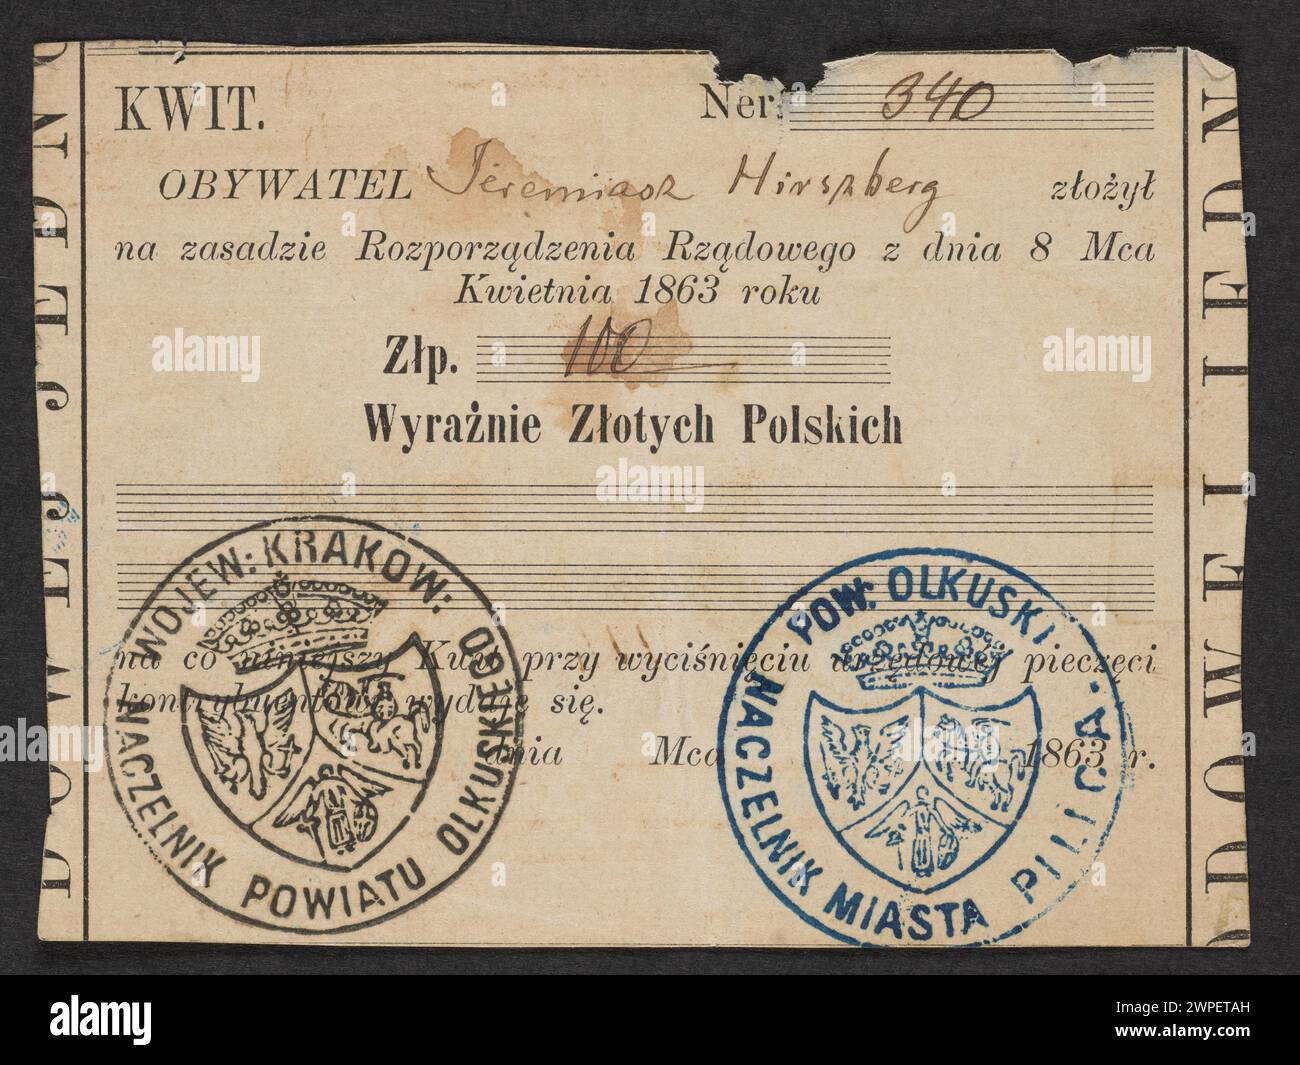 KWIT. Ner. 340
OBYWATEL Jeremiasz Hirszberg złożył
na zasadzie Rozporządzenia Rządowego z dnia 8 Mca
Kwietnia 1863 roku
Złp. 100
Wyraźnie Złotych Polskich
na co niniejszy Kwit przy wyciśnięciu urzędowej pieczęci
kontrybuentowi wydaje się.
dnia Mca 1863 r.
WOJEW: KRAKOW:
NACZELNIK POWIATU OLKUSKIEGO
POW: OLKUSKI
NACZELNIK MIASTA PILICA.
alamy
Image ID: 2WPETAH
www.alamy.com